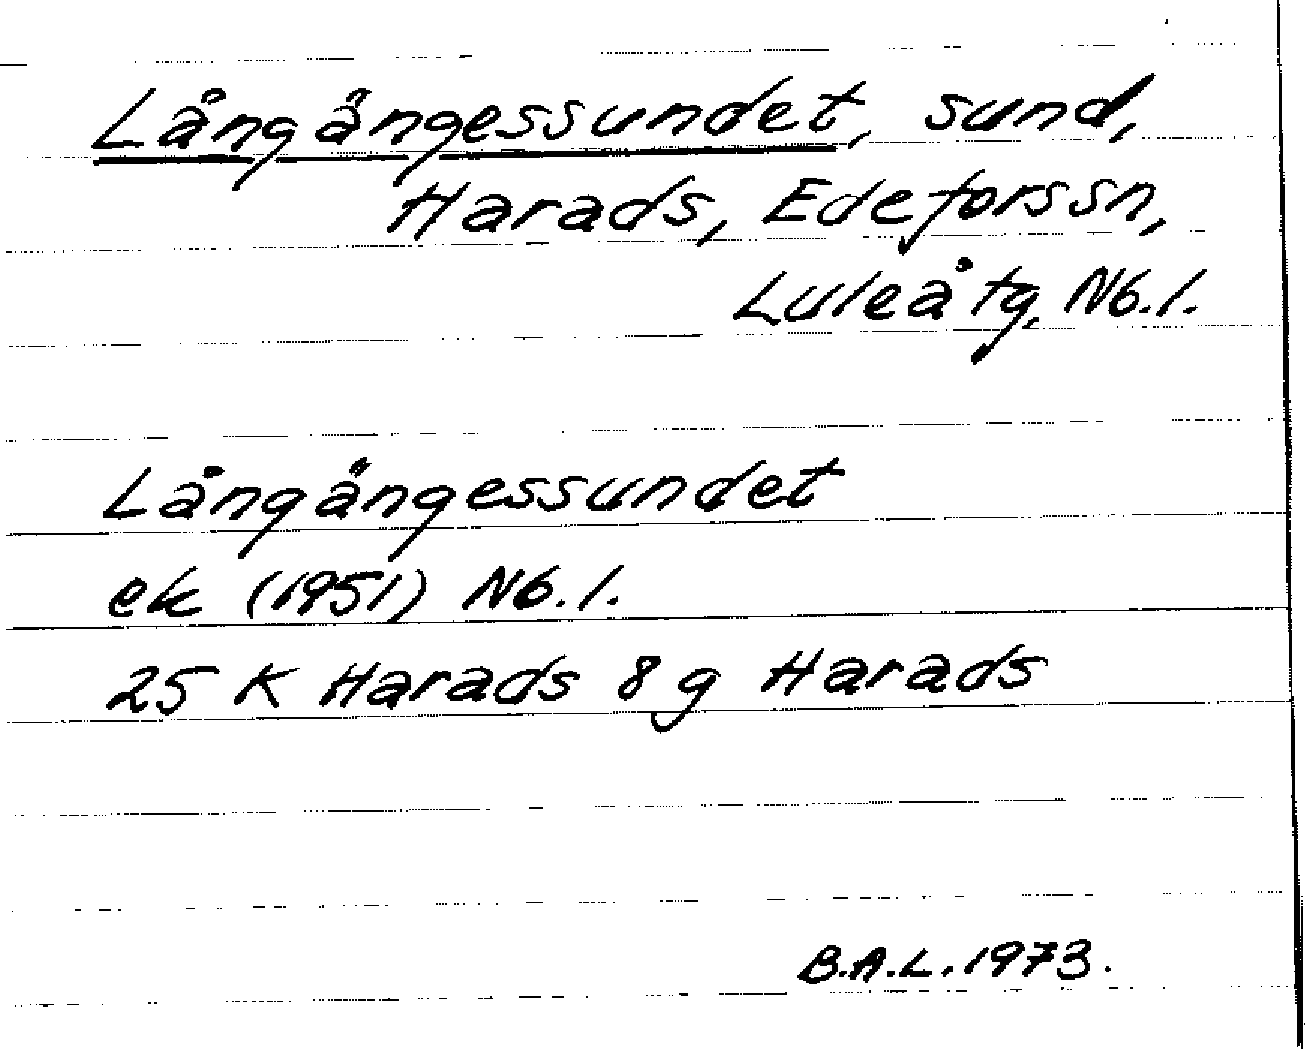 Långångessundet, sund,
Harads, Edeforssn,
Luleå tg, Nb.l.
Långångessundet
ek (1951) Nb.l.
25 K Harads 8 g Harads
B.A.L. 1973.